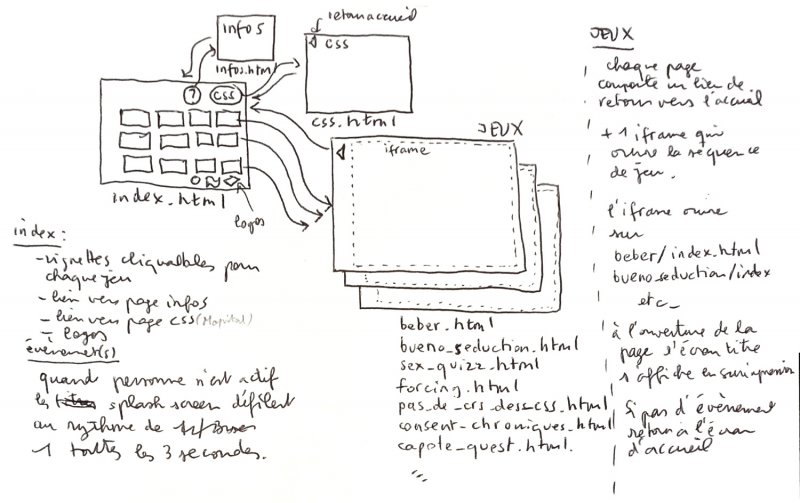 infos
infos.html
retour accueil
css
css.html
?
css
index.html
logos
JEUX
iframe
index :
- vignettes cliquables pour
chaque jeu
- lien vers page infos
- lien vers page css (Mapital)
- logos
évènement(s)
quand personne n'est actif
les splash screen défilent
au rythme de
1 toutes les 3 secondes.
beber.html
bueno_seduction.html
sex_quizz.html
forcing.html
pas_de_crs_dess_css.html
consent-chroniques.html
capote_quest.html.
JEUX
chaque page
comporte un lien de
retour vers l'accueil
+ 1 iframe qui
ouvre la séquence
de jeu.
l'iframe ouvre
sur
beber/index.html
bueno_seduction/index
etc_
à l'ouverture de la
page l'écran titre
s'affiche en surimpression
Si pas d'évènement
retour à l'écran
d'accueil